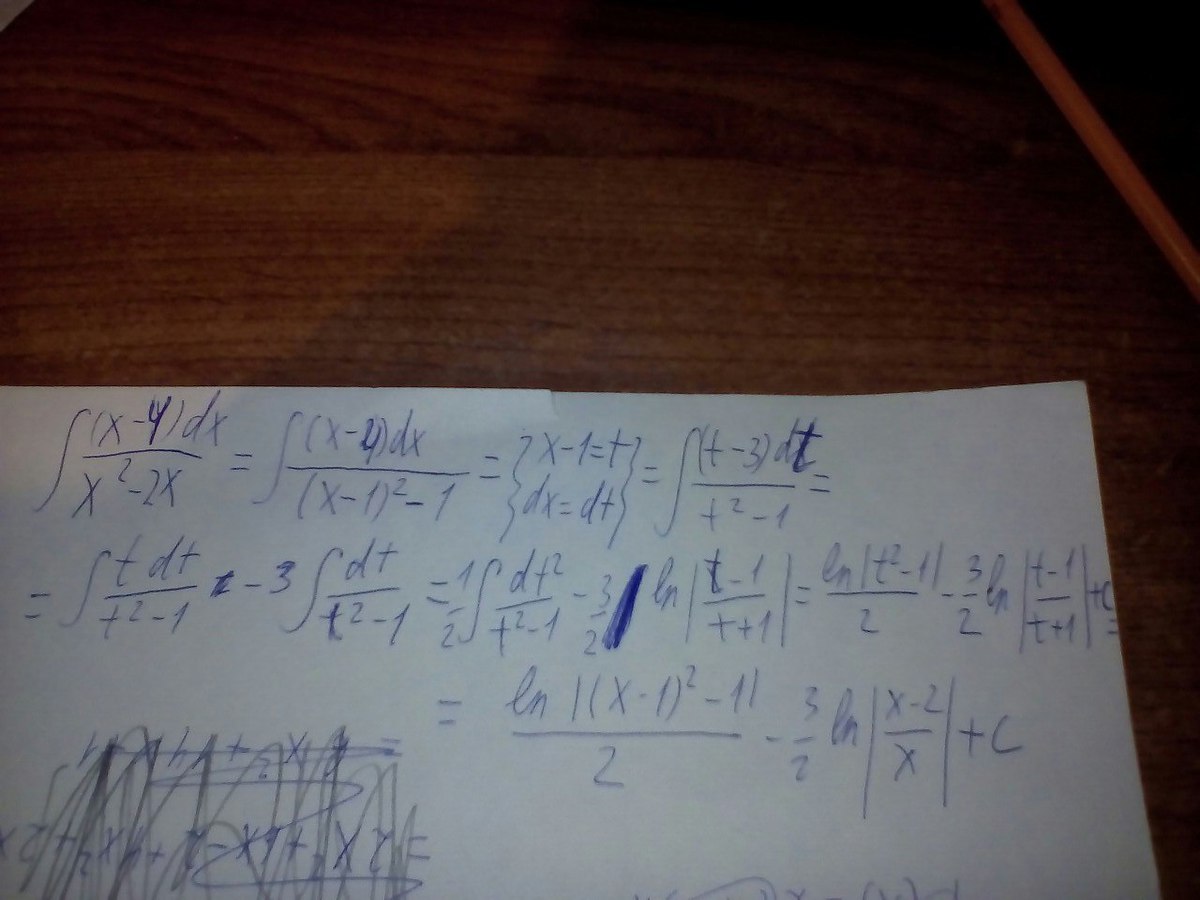 ∫ (x-4)dx / (x²-2x) = ∫ (x-4)dx / ((x-1)²-1) = {x-1=t; dx=dt} = ∫ (t-3)dt / (t²-1) =
= ∫ t dt / (t²-1) - 3 ∫ dt / (t²-1) = 1/2 ∫ dt² / (t²-1) - 3/2 ln |(t-1)/(t+1)| = ln|t²-1| / 2 - 3/2 ln |(t-1)/(t+1)| + C =
= ln |(x-1)²-1| / 2 - 3/2 ln |(x-2)/x| + C